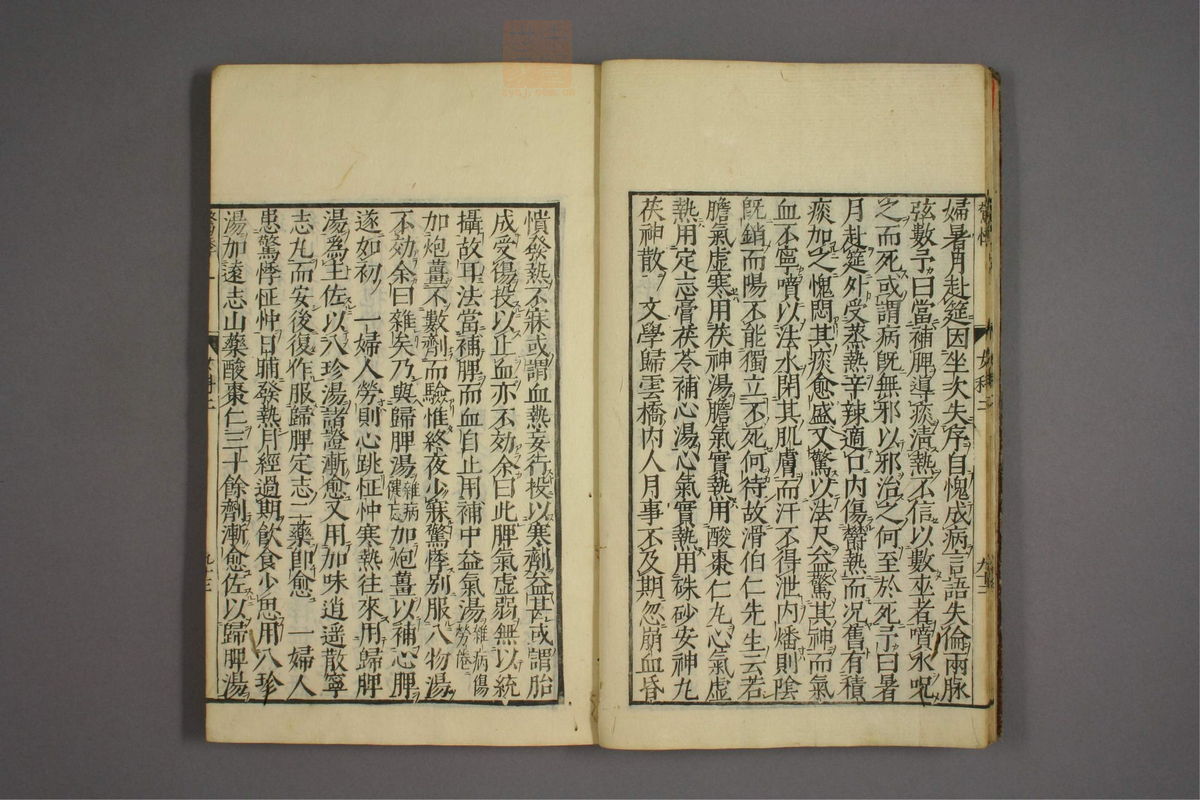 婦暑月赴筵因坐次失序自愧成病言語失倫兩脉
弦數予曰當補脾導痰清熱不信以數巫者噴水咒
之而死或謂病旣無邪以邪治之何至於死予曰暑
月赴筵外受蒸熱辛辣適口内傷鬱熱而况舊有積
痰加之愧悶其痰愈盛又驚以法尺益驚其神而氣
血不寧噴以法水閉其肌膚而汗不得泄内燔則陰
旣銷而陽不能獨立不死何待故滑伯仁先生云若
膽氣虛寒用茯神湯膽氣實熱用酸棗仁丸心氣虛
熱用定忘膏茯苓補心湯心氣實熱用硃砂安神丸
茯神散 文學歸雲橋内人月事不及期忽崩血昏
女科二
憒發熱不寐或謂血熱妄行投以寒劑益甚或謂胎
成受傷投以止血亦不効余曰此脾氣虛弱無以統
攝故耳法當補脾而血自止用補中益氣湯雜病傷勞倦
加炮薑不數劑而驗惟終夜少寐驚悸别服八物湯
不効余曰雜矣乃與歸脾湯雜病健忘加炮薑以補心脾
遂如初 一婦人勞則心跳怔忡寒熱往來用歸脾
湯爲主佐以八珍湯諸證漸愈又用加味逍遥散寧
志丸而安後復作服歸脾定志二藥即愈 一婦人
患驚悸怔忡日晡發熱月經過期飲食少思用八珍
湯加遠志山藥酸棗仁三十餘劑漸愈佐以歸脾湯